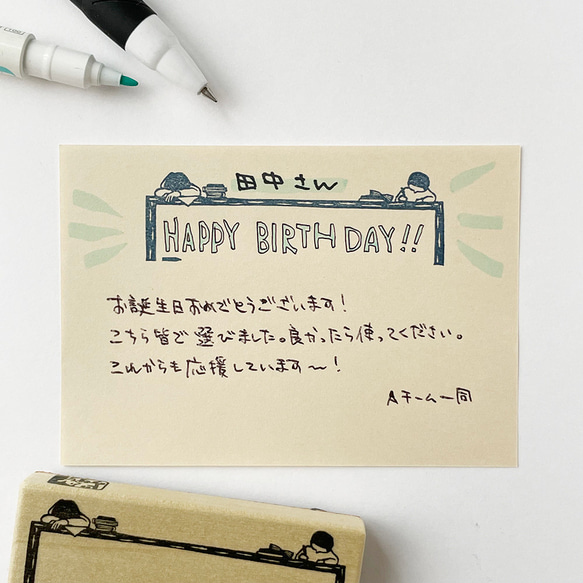 田中さん
HAPPY BIRTHDAY!!
お誕生日おめでとうございます!
こちら皆で選びました。良かったら使ってください。
これからも応援しています〜!
Aチーム一同